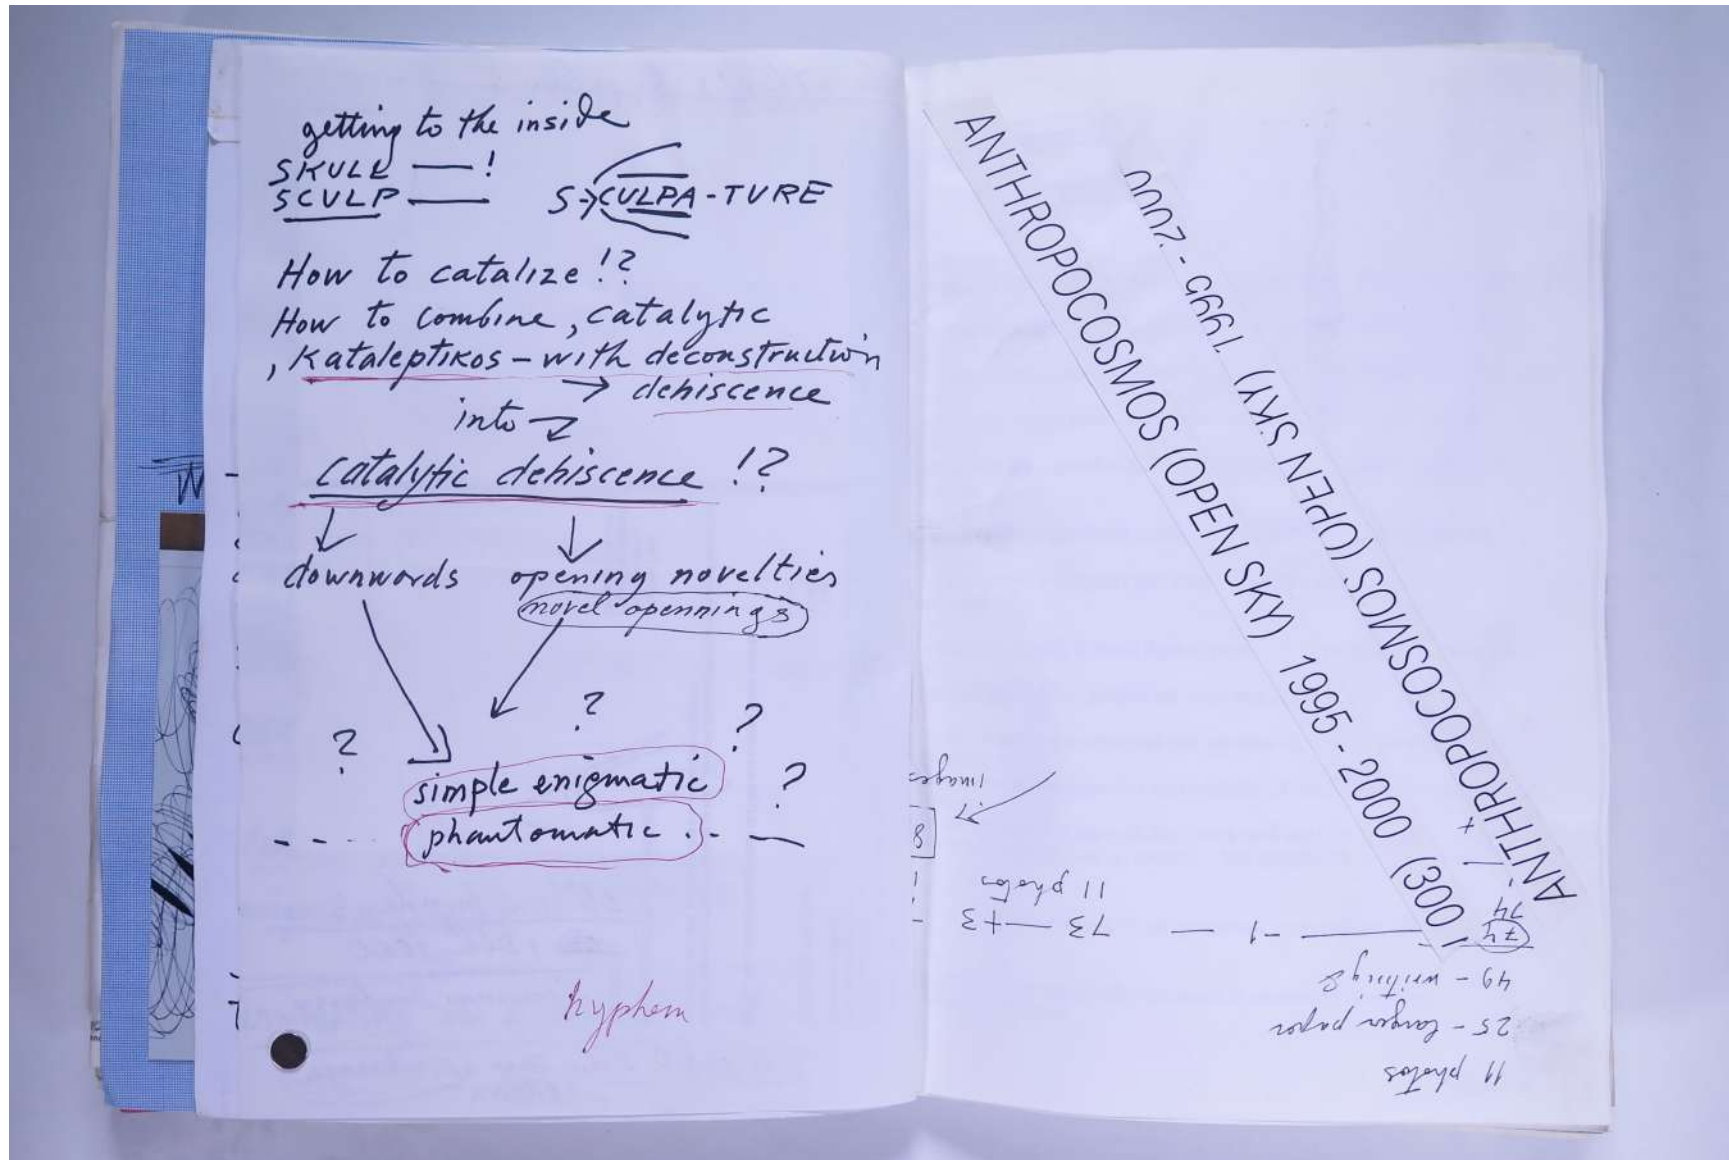 getting to the inside
SKULL — !
SCULP —
S-CULPA-TURE
How to catalize !?
How to combine, catalytic
, Kataleptikos – with deconstruction
→ dehiscence
into →
catalytic dehiscence !?
downwards opening novelties
novel openings
? ? ?
simple enigmatic ?
- - - phantomatic . . —
hyphem
ANTHROPOCOSMOS (OPEN SKY) 1995 - 2000 (300
ANTHROPOCOSMOS (OPEN SKY) 1995 - 2000
11 photos
25 - larger paper
49 - writings
74 — -1 — 73 — +3
74
11 photos
8
images